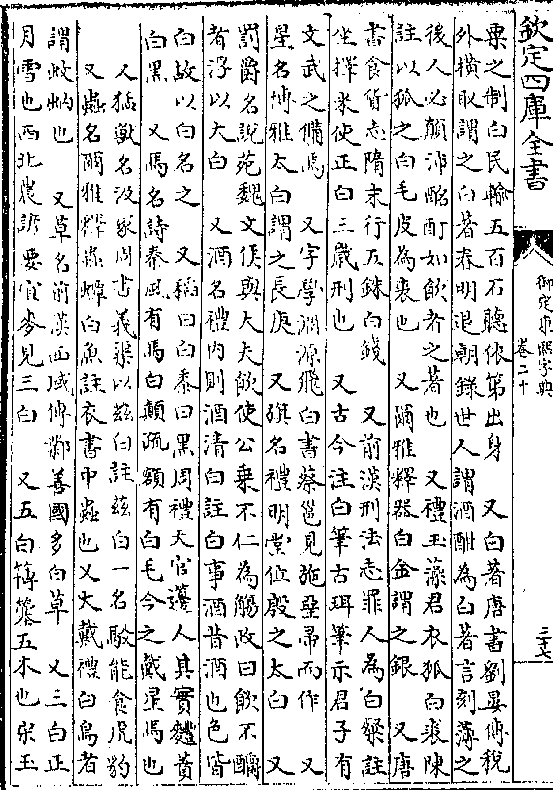 欽定四庫全書
御定康熙字典
卷二十
粟之制白民輸五百石聽依第出身　又白著唐書劉晏傳稅
外橫取謂之白著春明退朝錄世人謂酒酣為白著言刻薄之
後人必顛沛酩酊如飲者之著也　又禮玉藻君衣狐白裘陳
註以狐之白毛皮為裘也　又爾雅釋器白金謂之銀　又唐
書食貨志隋末行五銖白錢　又前漢刑法志罪人為白粲註
坐擇米使正白三歲刑也　又古今注白筆古珥筆示君子有
文武之備焉　又字學淵源飛白書蔡邕見施堊帚而作　又
星名博雅太白謂之長庚　又旗名禮明堂位殷之太白　又
罰爵名說苑魏文侯與大夫飲使公乗不仁為觴政曰飲不釂
者浮以大白　又酒名禮內則酒清白註白事酒昔酒也色皆
白故以白名之　又稻曰白黍曰黑周禮天官籩人其實麷蕡
白黑　又馬名詩秦風有馬白顛疏額有白毛今之戴星馬也
又猛獸名汲冢周書義渠以兹白註兹白一名駮能食虎豹
又蟲名爾雅釋蟲蟫白魚註衣書中蟲也又大戴禮白鳥者
謂蚊蚋也　又草名前漢西域傳鄯善國多白草　又三白正
月雪也西北農諺要宜麥見三白　又五白簙簺五木也宋玉